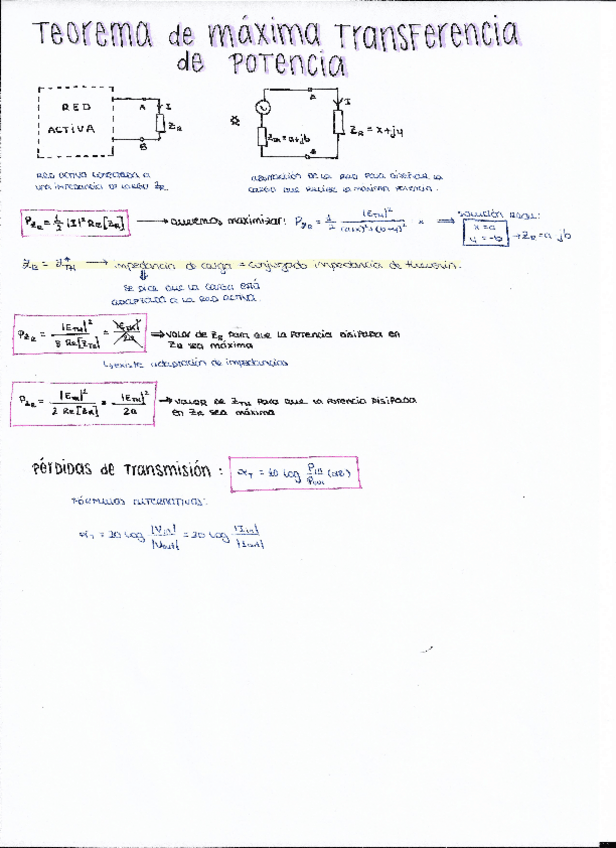 Teorema de máxima Transferencia
de Potencia
RED
ACTIVA
A
I
Z_R
B
A
I
Z_TH = a+jb
Z_R = x+jy
B
RED ACTIVA CONECTADA A
UNA IMPEDANCIA DE CARGA Z_R.
DE LA RED PARA DISEÑAR LA
CARGA QUE RECIBE LA MÁXIMA POTENCIA.
P_ZR = 1/2 |I|² Re[Z_R] → queremos maximizar: P_ZR = 1/2 |E_TH|² / (a+x)²+(b+y)² · x ⇒ SOLUCIÓN REAL:
x = a
y = -b
→ Z_R = a jb
Z_R = Z*_TH → impedancia de carga = conjugado impedancia de thevenin.
SE DICE QUE LA CARGA ESTÁ
ADAPTADA A LA RED ACTIVA.
P_ZR = |E_TH|² / 8 Re[Z_TH] = ⇒ VALOR DE Z_R PARA QUE LA POTENCIA DISIPADA EN
Z_R SEA MÁXIMA
↳ existe adaptación de impedancias
P_ZR = |E_TH|² / 2 Re[Z_R] = |E_TH|² / 2a → VALOR DE Z_TH PARA QUE LA POTENCIA DISIPADA
EN Z_R SEA MÁXIMA
Pérdidas de Transmisión : α_T = 10 log P_in / P_out (dB)
FÓRMULAS ALTERNATIVAS:
α_T = 20 log |V_in| / |V_out| = 20 log |I_in| / |I_out|